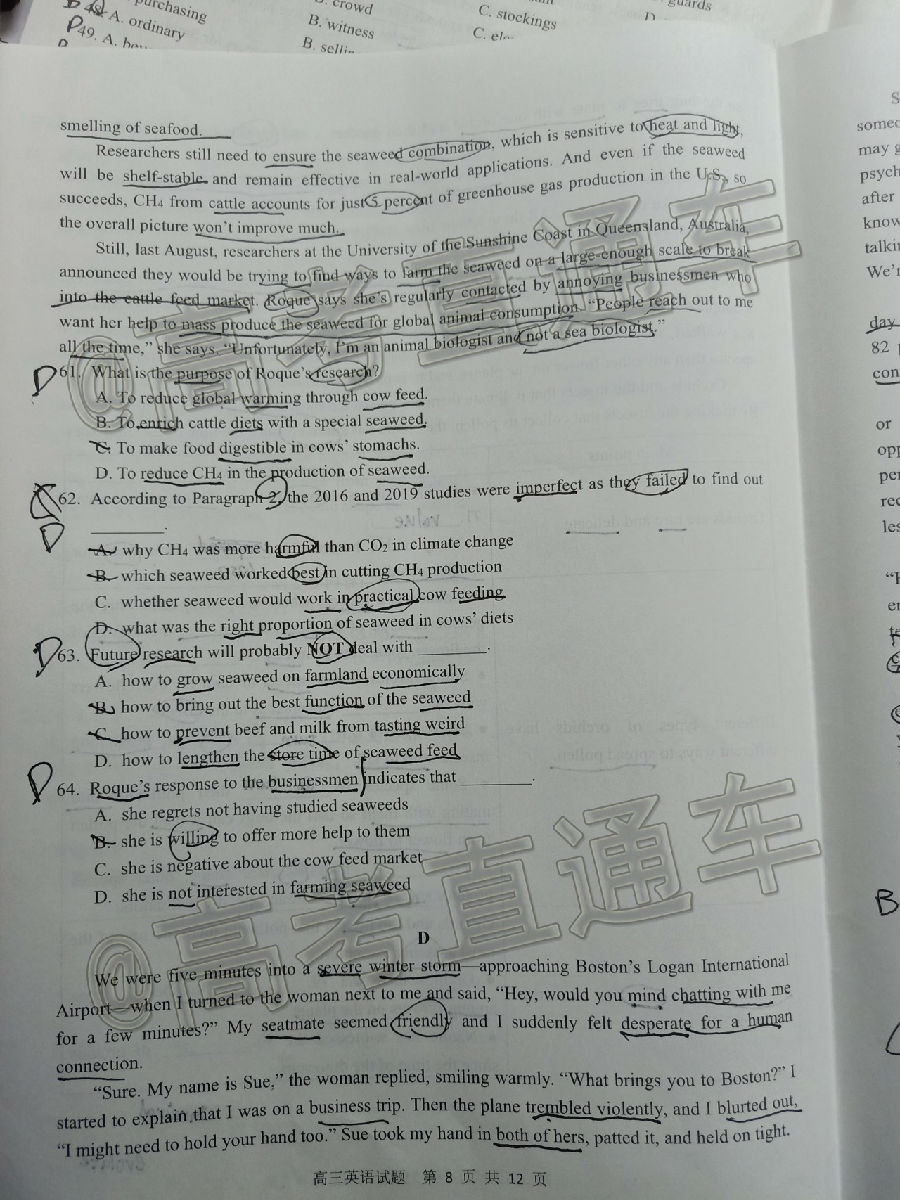 48. A. ordinary
49. A.
purchasing
B. crowd
B. witness
C. stockings
guards
smelling of seafood.
Researchers still need to ensure the seaweed combination, which is sensitive to heat and light,
will be shelf-stable and remain effective in real-world applications. And even if the seaweed
succeeds, CH4 from cattle accounts for just 5 percent of greenhouse gas production in the U.S., so
the overall picture won't improve much.
Still, last August, researchers at the University of the Sunshine Coast in Queensland, Australia,
announced they would be trying to find ways to farm the seaweed on a large-enough scale to break
into the cattle feed market. Roque says she's regularly contacted by annoying businessmen who
want her help to mass produce the seaweed for global animal consumption. "People reach out to me
all the time," she says. "Unfortunately, I'm an animal biologist and not a sea biologist."
D
61. What is the purpose of Roque's research?
A. To reduce global warming through cow feed.
B. To enrich cattle diets with a special seaweed.
C. To make food digestible in cows' stomachs.
D. To reduce CH4 in the production of seaweed.
62. According to Paragraph 2, the 2016 and 2019 studies were imperfect as they failed to find out
________.
D
A. why CH4 was more harmful than CO2 in climate change
B. which seaweed worked best in cutting CH4 production
C. whether seaweed would work in practical cow feeding
D. what was the right proportion of seaweed in cows' diets
D
63. Future research will probably NOT deal with ________.
A. how to grow seaweed on farmland economically
B. how to bring out the best function of the seaweed
C. how to prevent beef and milk from tasting weird
D. how to lengthen the store time of seaweed feed
D
64. Roque's response to the businessmen indicates that ________.
A. she regrets not having studied seaweeds
B. she is willing to offer more help to them
C. she is negative about the cow feed market
D. she is not interested in farming seaweed
D
We were five minutes into a severe winter storm—approaching Boston's Logan International
Airport—when I turned to the woman next to me and said, "Hey, would you mind chatting with me
for a few minutes?" My seatmate seemed friendly and I suddenly felt desperate for a human
connection.
"Sure. My name is Sue," the woman replied, smiling warmly. "What brings you to Boston?" I
started to explain that I was on a business trip. Then the plane trembled violently, and I blurted out,
"I might need to hold your hand too." Sue took my hand in both of hers, patted it, and held on tight.
高三英语试题 第 8 页 共 12 页
@高考直通车
@高考直通车
may
after
know
talkin
We're
day
82
con
or
B